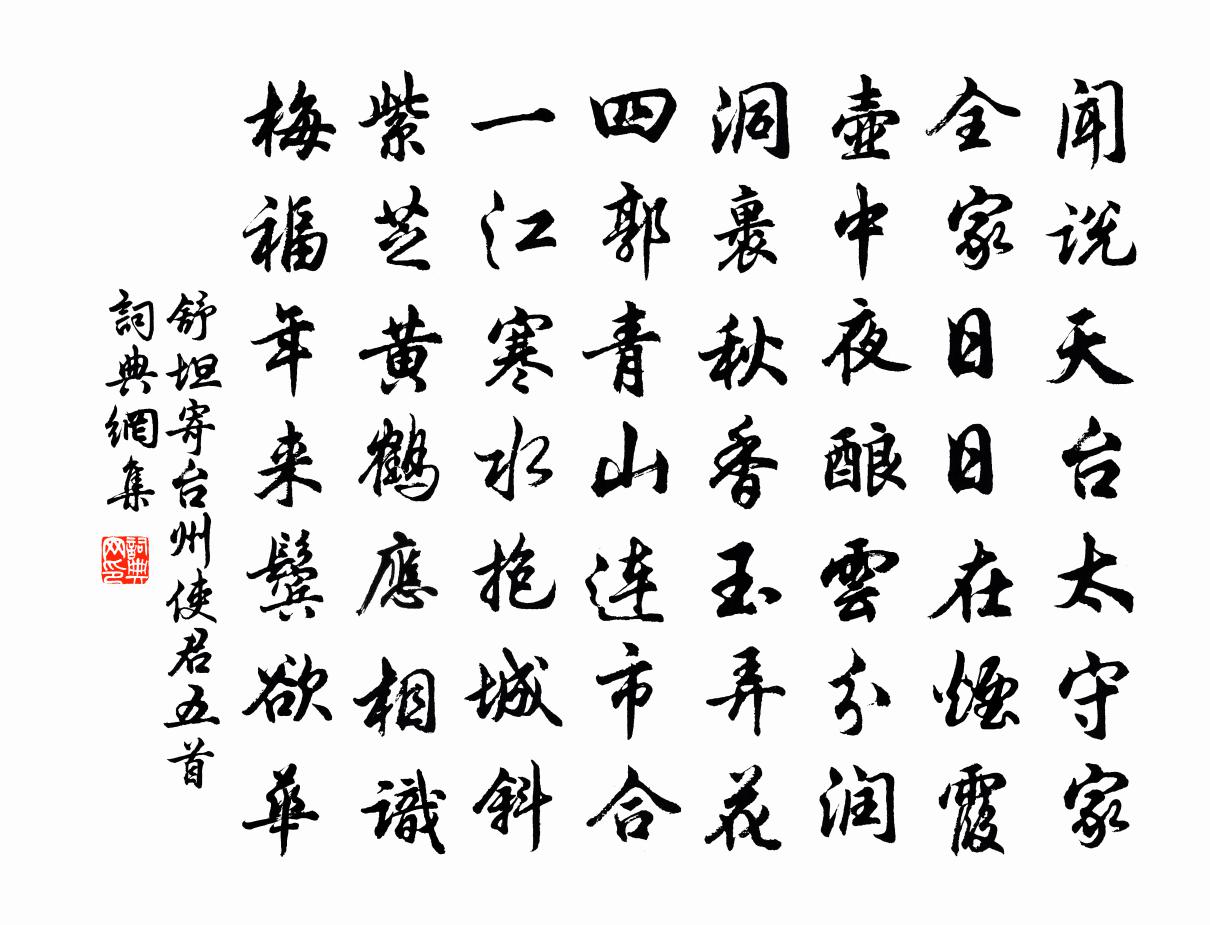 闻说天台太守家
全家日日在煙霞
壺中夜酿雲分润
洞裏秋香玉弄花
四郭青山连市合
一江寒水抱城斜
紫芝黄鹤應相識
梅福年来鬓欲華
舒坦寄台州使君五首
詞典網集
詞典网印